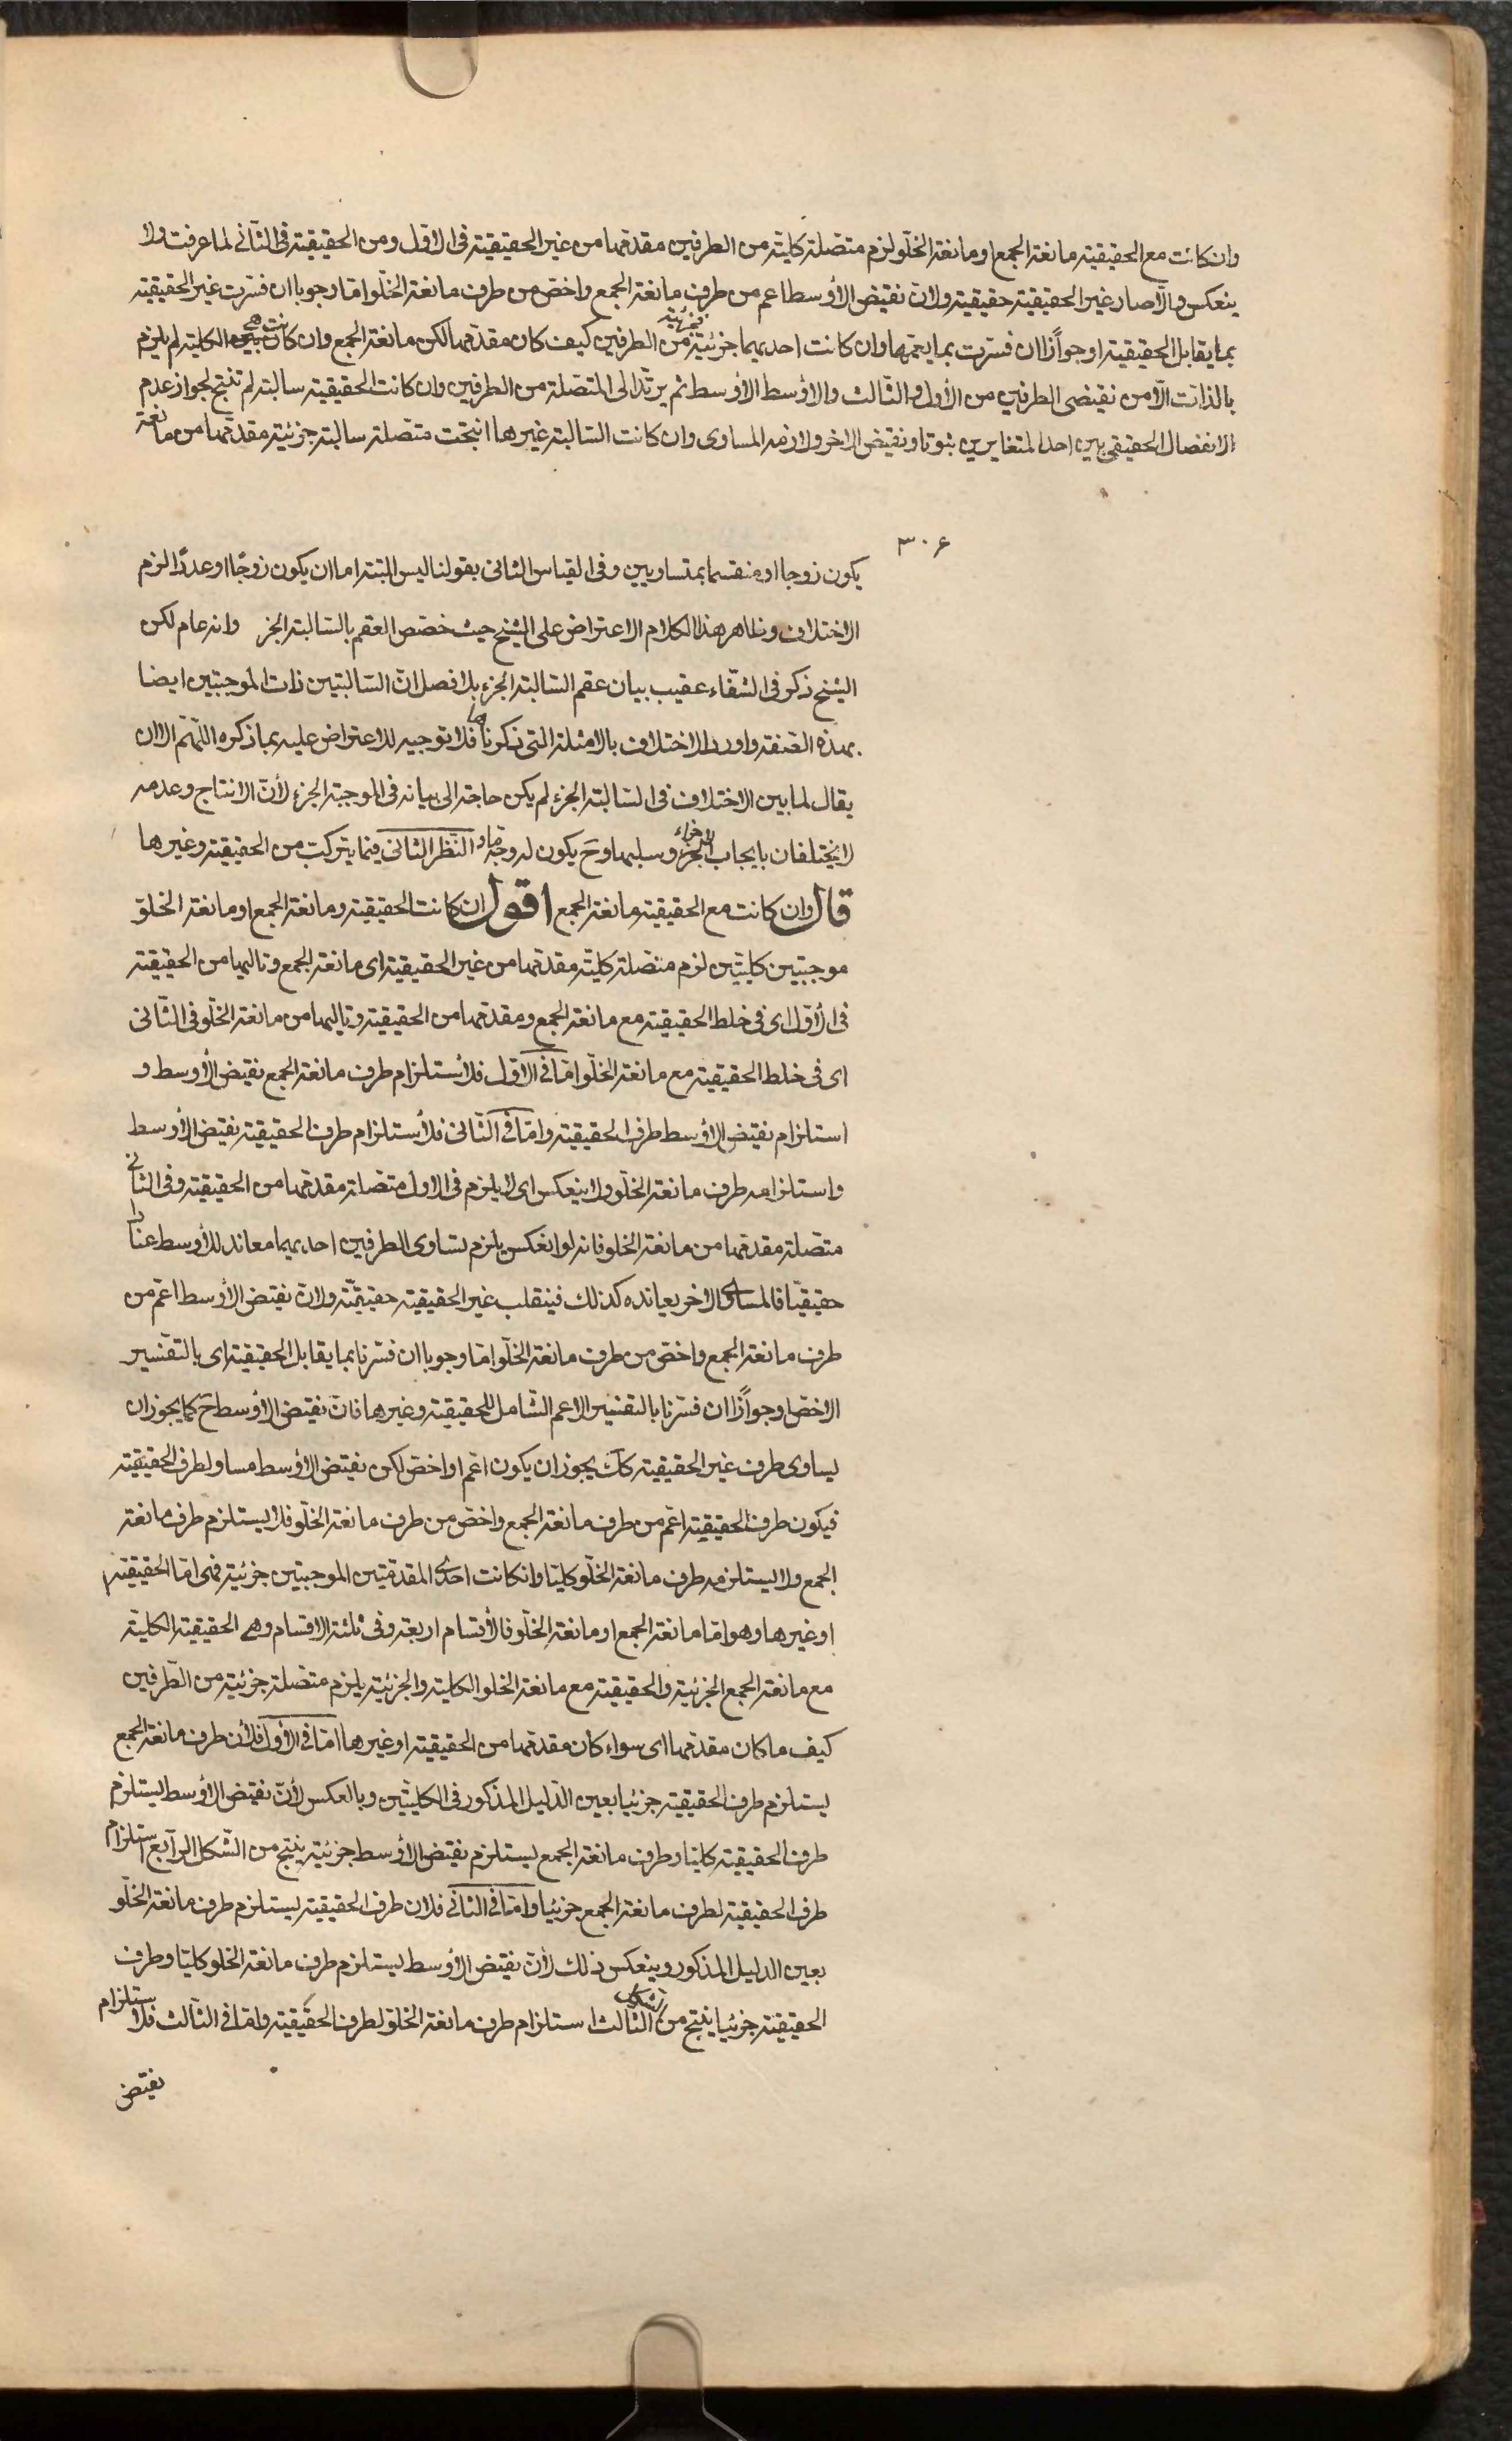 وان كانت مع الحقيقية مانعة الجمع او مانعة الخلو لزم متصلة كلية من الطرفين مقدمها من غير الحقيقية فى الاول ومن الحقيقية فى الثانى لما عرفت ولا
ينعكس والا صار غير الحقيقية حقيقية ولان نقيض الأوسط اعم من طرف مانعة الجمع واخص من طرف مانعة الخلو اما وجوبا ان فسرت غير الحقيقية
بما يقابل الحقيقية او جوازا ان فسرت بما يعمها وان كانت احديهما جزئية فجزئية من الطرفين كيف كان مقدمها لكن مانعة الجمع وان كانت هى الكلية لم يلزم
بالذات الا من نقيضى الطرفين من الأول والثالث والاوسط الأوسط ثم يرتد الى المتصلة من الطرفين وان كانت الحقيقية سالبة لم تنتج لجواز عدم
الانفصال الحقيقى بين احد المتغايرين ثبوتا ونقيض الاخر ولازمه المساوى وان كانت السالبة غيرها انتجت متصلة سالبة جزئية مقدمها من مانعة
٣٠٤
يكون زوجا او منقسما بمتساويين وفى القياس الثانى بقولنا ليس البتة اما ان يكون زوجا او عددا لزم
الاختلاف وظاهر هذا الكلام الاعتراض على الشيخ حيث خصص العقم بالسالبة الجزء وانه عام لكن
الشيخ ذكر فى الشفاء عقيب بيان عقم السالبة الجزء بلا فصل ان السالبتين ذات الموجبتين ايضا
بهذه الصفة واورد الاختلاف بالامثلة التى ذكرناها فلا توجيه للاعتراض عليه بما ذكره اللهم الا ان
يقال لما بين الاختلاف فى السالبة الجزء لم يكن حاجة الى بيانه فى الموجبة الجزء لأن الانتاج وعدمه
لا يختلفان بايجاب الاجزاء وسلبها وح يكون له وجه ما و النظر الثانى فيما يتركب من الحقيقية وغيرها
قال وان كانت مع الحقيقية مانعة الجمع اقول ان كانت الحقيقية ومانعة الجمع او مانعة الخلو
موجبتين كليتين لزم متصلة كلية مقدمها من غير الحقيقية اى مانعة الجمع وتاليها من الحقيقية
فى الأول اى فى خلط الحقيقية مع مانعة الجمع ومقدمها من الحقيقية وتاليها من مانعة الخلو فى الثانى
اى فى خلط الحقيقية مع مانعة الخلو اما فى الاول فلأستلزام طرف مانعة الجمع نقيض الأوسط و
استلزام نقيض الاوسط طرف الحقيقية واما فى الثانى فلأستلزام طرف الحقيقية نقيض الأوسط
واستلزامه طرف مانعة الخلو ولا ينعكس اى لا يلزم فى الاول متصلة مقدمها من الحقيقية وفى الثانى
متصلة مقدمها من مانعة الخلو فانه لو انعكس يلزم تساوى الطرفين احديهما معاند للأوسط عنادا
حقيقيا فالمساوى الاخر يعانده كذلك فينقلب غير الحقيقية حقيقية ولان نقيض الأوسط اعم من
طرف مانعة الجمع واخص من طرف مانعة الخلو اما وجوبا ان فسرنا بما يقابل الحقيقية اى بالتفسير
الاخص او جوازا ان فسرنا بالتفسير الاعم الشامل للحقيقية وغيرها فان نقيض الأوسط ح كما يجوز ان
يساوى طرف غير الحقيقية كك يجوز ان يكون اعم او اخص لكن نقيض الأوسط مساو لطرف الحقيقية
فيكون طرف الحقيقية اعم من طرف مانعة الجمع واخص من طرف مانعة الخلو فلا يستلزم طرف مانعة
الجمع ولا يستلزمه طرف مانعة الخلو كليا وان كانت احدى المقدمتين الموجبتين جزئية فهى اما الحقيقية
او غيرها وهو اما مانعة الجمع او مانعة الخلو فالأقسام اربعة وفى ثلثة الاقسام وهى الحقيقية الكلية
مع مانعة الجمع الجزئية والحقيقية مع مانعة الخلو الكلية والجزئية يلزم متصلة جزئية من الطرفين
كيف ما كان مقدمها اى سواء كان مقدمها من الحقيقية او غيرها اما فى الأول فلأن طرف مانعة الجمع
يستلزم طرف الحقيقية جزئيا بعين الدليل المذكور فى الكليتين وبالعكس لأن نقيض الأوسط يستلزم
طرف الحقيقية كليا وطرف مانعة الجمع يستلزم نقيض الأوسط جزئية ينتج من الشكل الرابع استلزام
طرف الحقيقية لطرف مانعة الجمع جزئيا واما فى الثانى فلان طرف الحقيقية يستلزم طرف مانعة الخلو
بعين الدليل المذكور وينعكس ذلك لأن نقيض الأوسط يستلزم طرف مانعة الخلو كليا وطرف
الحقيقية جزئيا ينتج من الشكل الثالث استلزام طرف مانعة الخلو لطرف الحقيقية واما فى الثالث فلاستلزام
نقيض